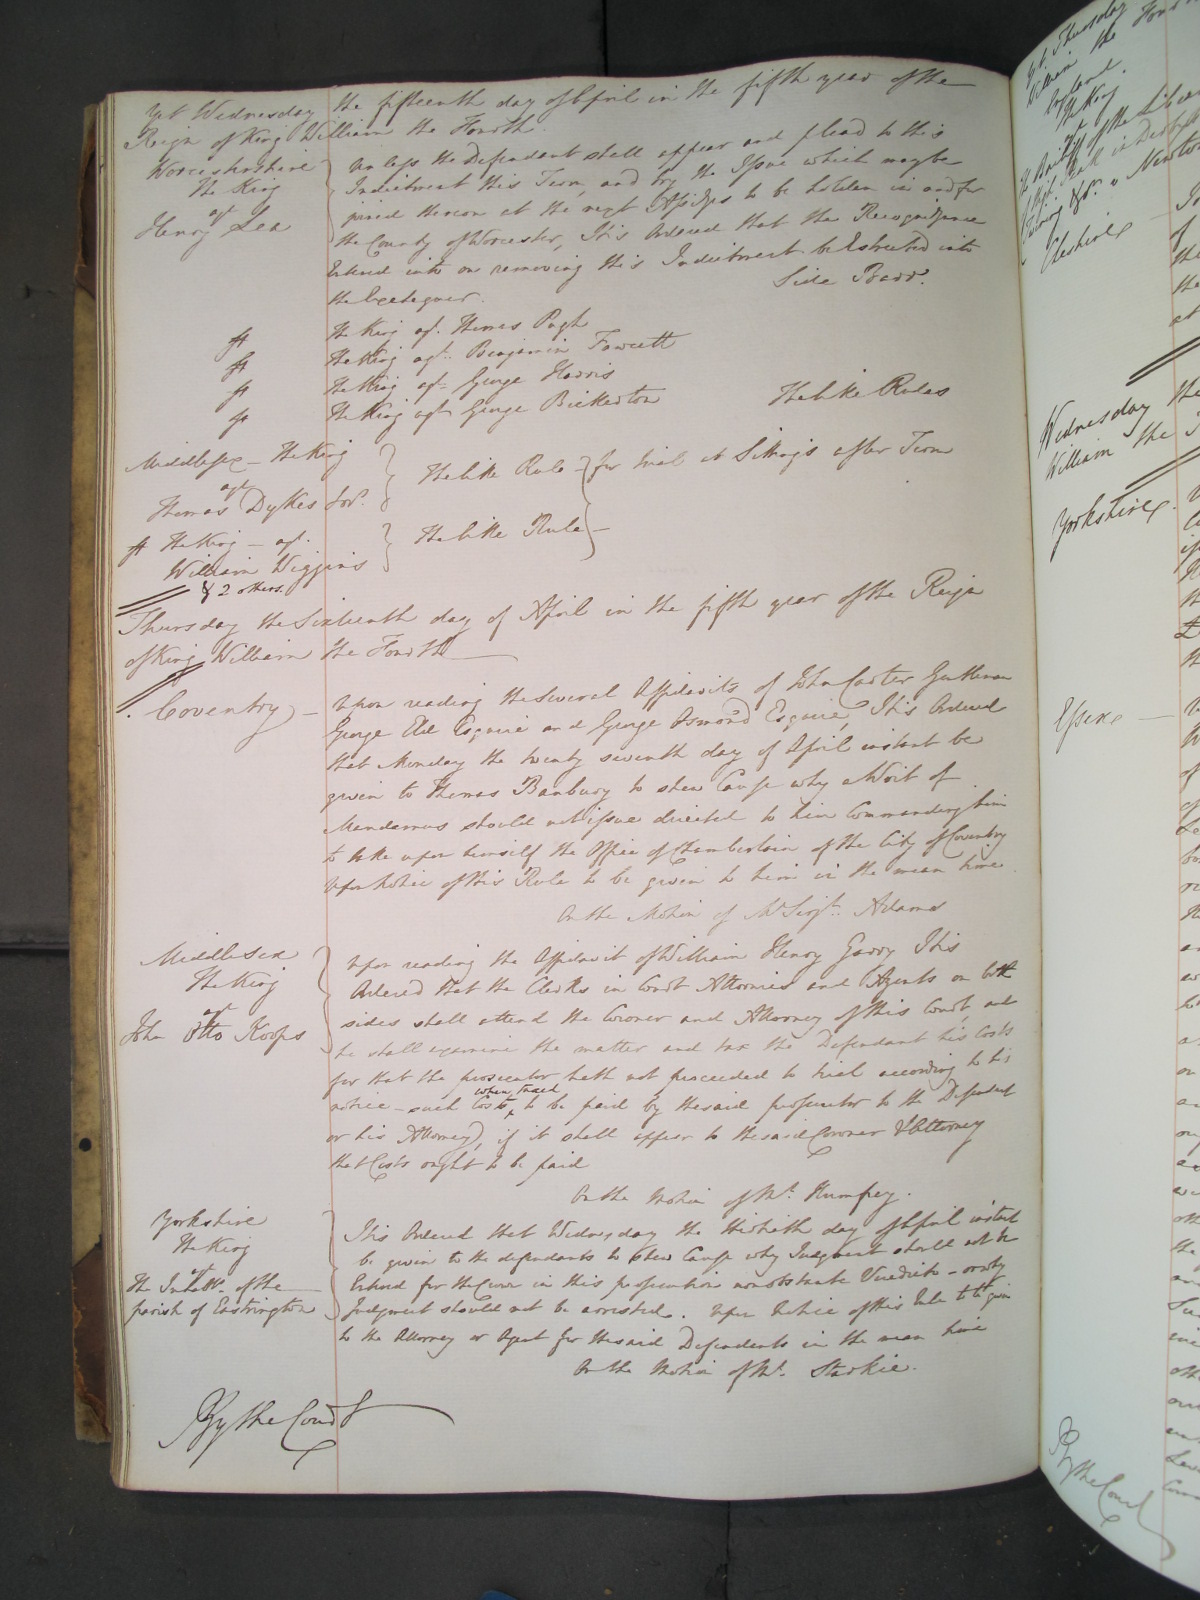 Yet Wednesday the fifteenth day of April in the fifth year of the
Reign of King William the Fourth.
Worcestershire
The King
agt
Henry Lea
Unless the Defendant shall appear and plead to this
Indictment this Term, and try the Issue which may be
joined thereon at the next Assizes to be holden in and for
the County of Worcester, It is Ordered that the Recognizance
Entered into on removing this Indictment be Estreated into
the Exchequer.
Side Barr.
The King agt. Thomas Pugh
The King agt. Benjamin Fawcett
The King agt. George Harris
The King agt George Bickerton The like Rules
Middlesex - The King
agt
Thomas Dykes
The like Rule - for trial at Sittings after Term
The King - agt.
William Wiggins
& 2 others.
The like Rule -
Thursday the Sixteenth day of April in the fifth year of the Reign
of King William the Fourth
Coventry -
Upon reading the Several Affidavits of John Carter Gentleman
George Eld Esquire and George Osmond Esquire, It is Ordered
that Monday the twenty seventh day of April instant be
given to Thomas Banbury to shew Cause why a Writ of
Mandamus should not issue directed to him Commanding him
to take upon himself the Office of Chamberlain of the City of Coventry
Upon Notice of this Rule to be given to him in the mean time.
On the Motion of Mr Serjt. Adams
Middlesex
The King
agt
John Otto Koops
Upon reading the Affidavit of William Henry It is
Ordered that the Clerks in Court Attornies and Agents on both
sides shall attend the Coroner and Attorney of this Court, and
he shall examine the matter and tax the Defendant his Costs
for that the prosecutor hath not proceeded to trial according to his
notice - such Costs, when taxed to be paid by the said prosecutor to the Defendant
or his Attorney, if it shall appear to the said Coroner & Attorney
that Costs ought to be paid
On the Motion of Mr. Humfrey.
Yorkshire
The King
agt
The Inhabts. of the
parish of Eastrington
It is Ordered that Wednesday the thirtieth day of April instant
be given to the defendants to shew Cause why Judgment should not be
Entered for the Crown in this prosecution nonobstante Veredicto - or why
Judgment should not be arrested. Upon Notice of this Rule to be given
to the Attorney or Agent for the said Defendants in the mean time
On the Motion of Mr. Starkie.
By the Court
Yet Thursday
William the
England.
The King
agt
Cheshire
Wednesday the
William the
Yorkshire.
Essex -
By the Court